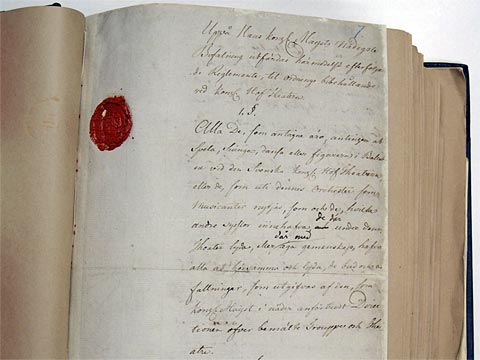 7.
Uppå Hans Kongl. Maijsts Nådigste
Befalning utfärdas härmedelst efterfölgan-
de Reglemente, til ordnings bibehållande
ved Kongl. Hof Theatern.
1. §.
Alla De, som antagne äro, antingen at
Spela, Siunga, dansa eller figurera i Balet-
ten vid den Svenska Kongl. Hof Theatern
eller de, som uti dennes Orchester som
Musicanter nyttjas, som ock de, hvilka
andre syslor innehafva, de där under denna
Theater lyda, där med gemenskap, hafva
alla at hörsamma och lyda, de
fallningar, som utgifvas af den, som
Kongl. Maijst i nåder anförtrodt Direc-
tionen öfver bemälte Trouppe och The-
atre.